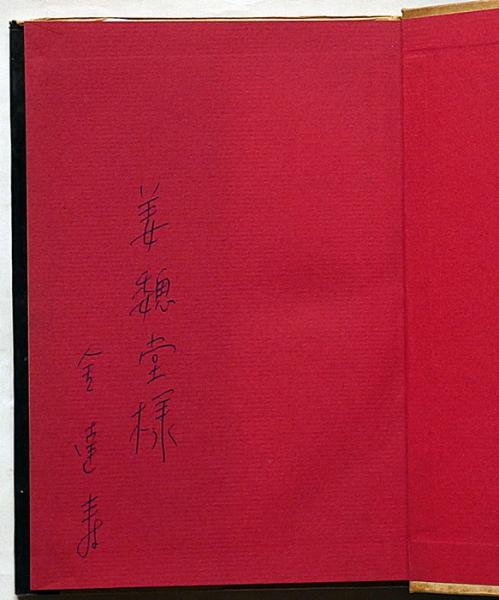 姜魏堂様
金達寿